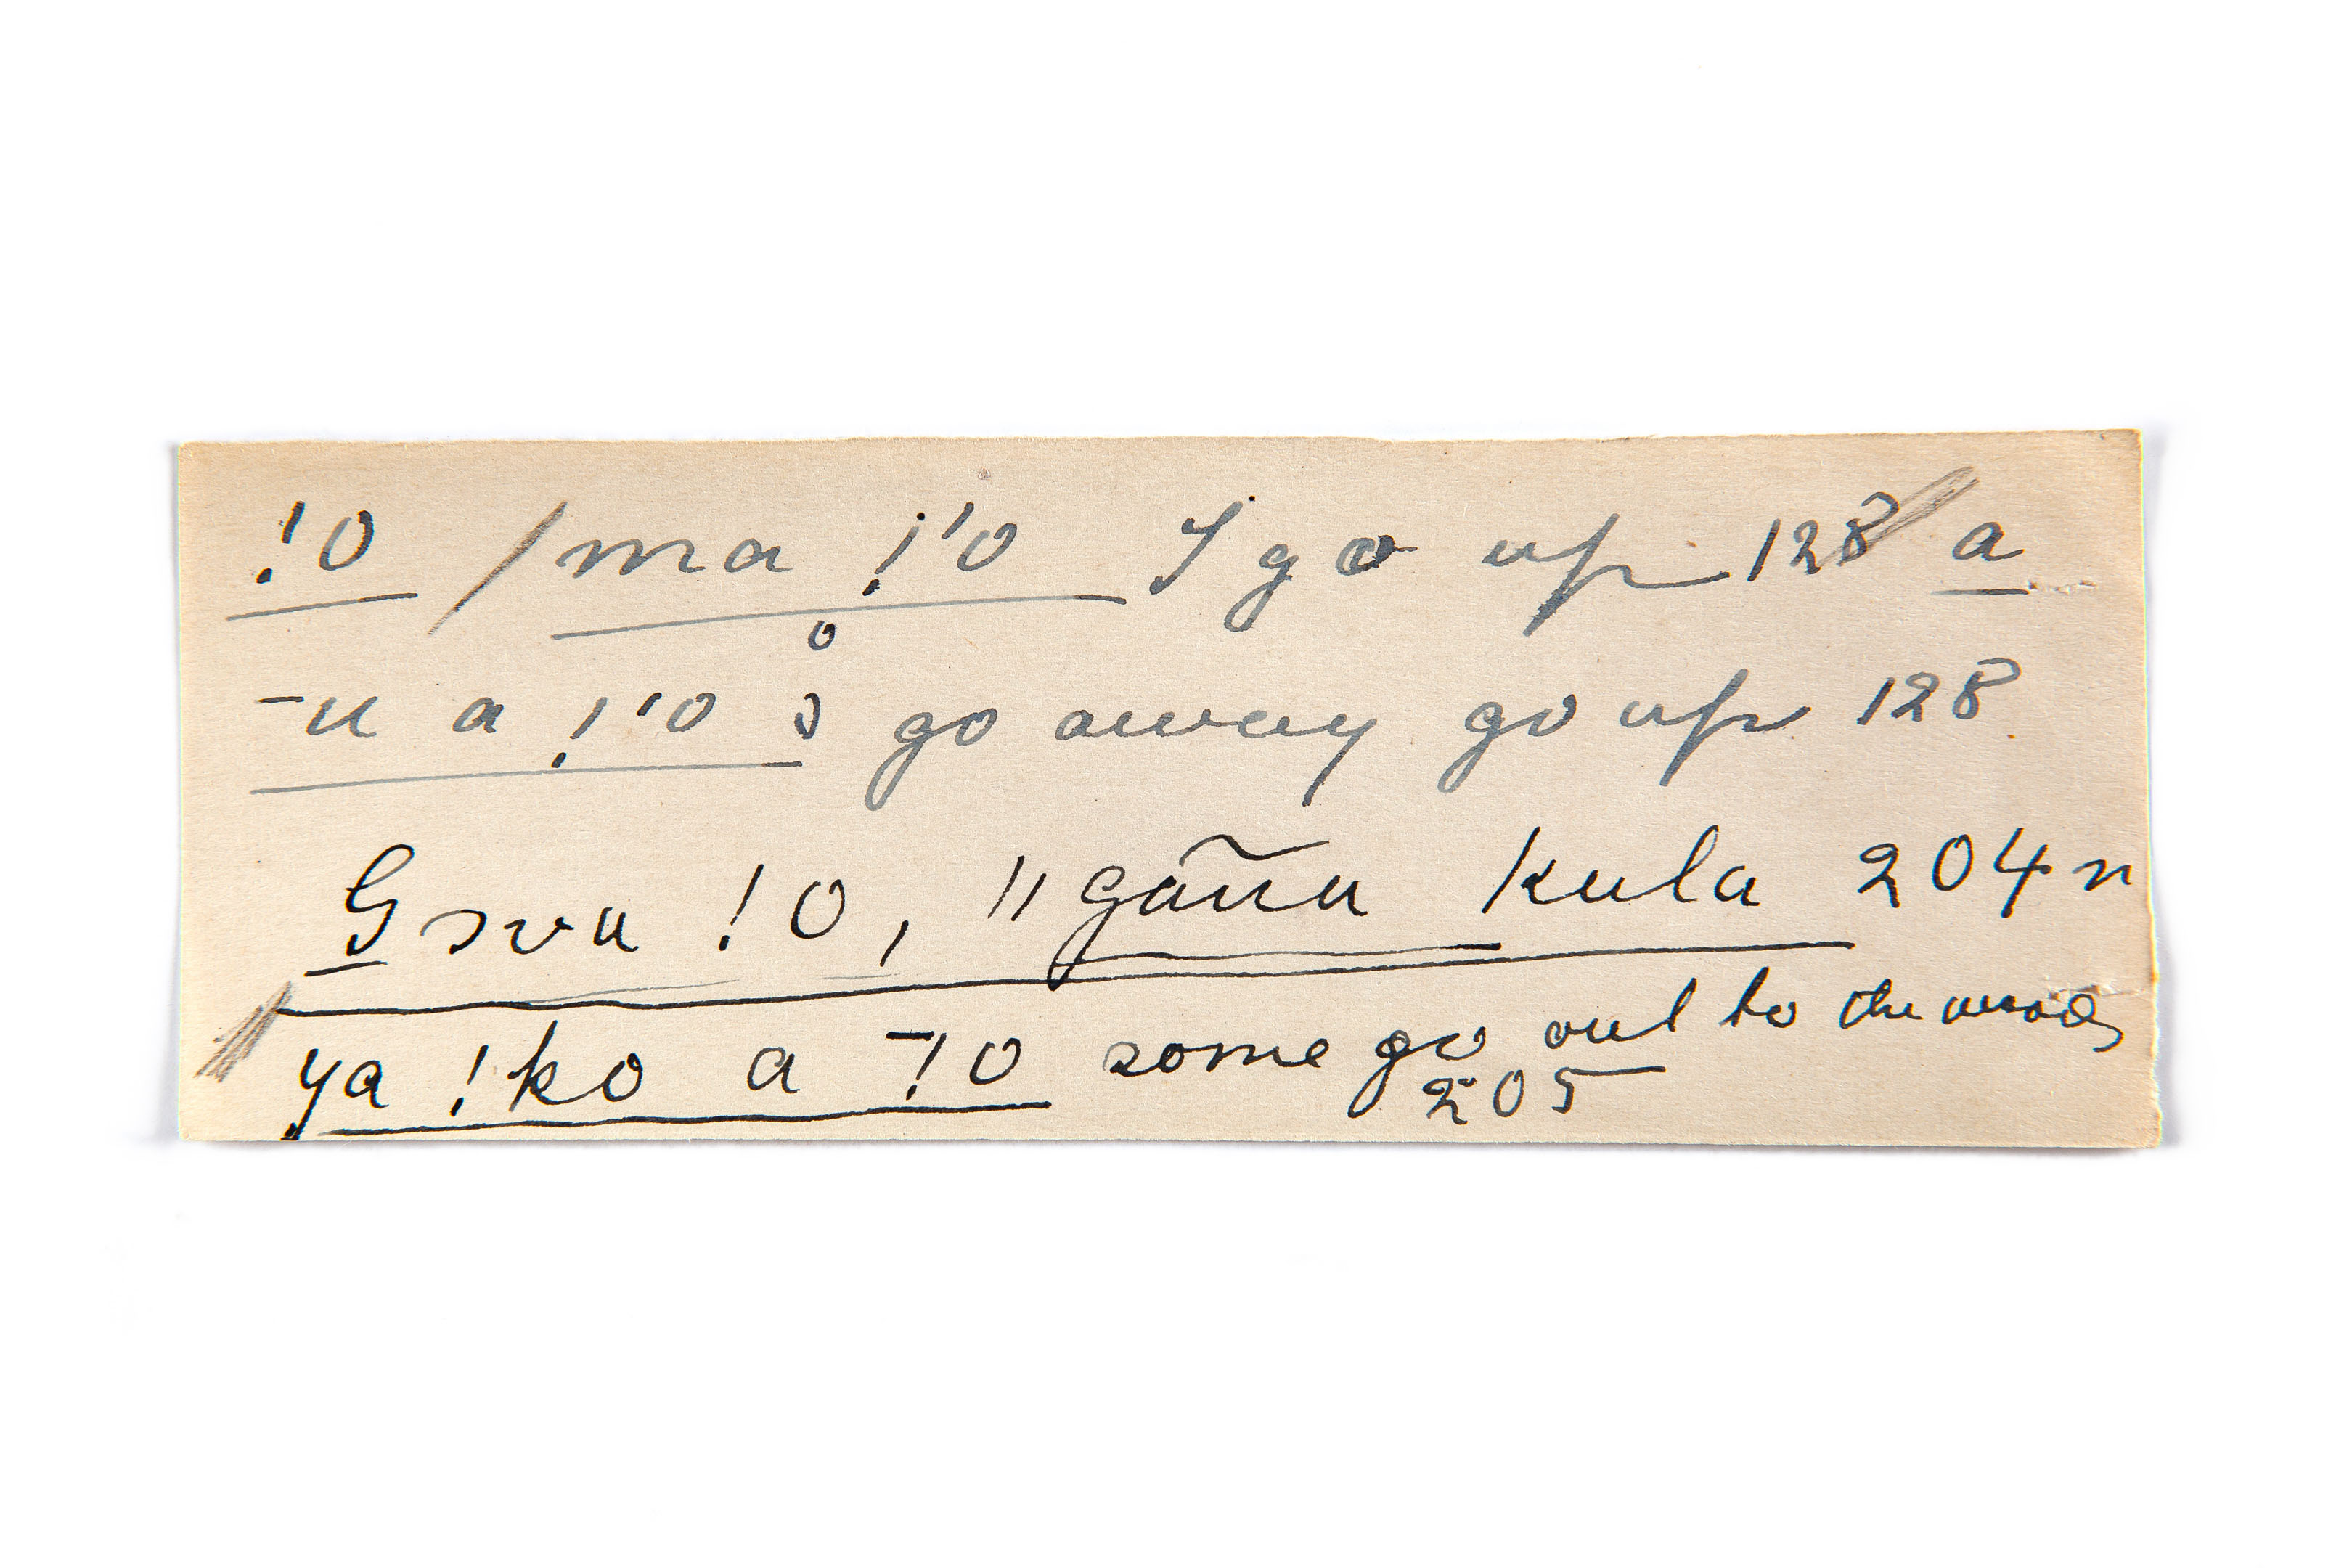 !O / ma !'o I go up 128 a
-u a !'o go away go up 128
!O, ‖gãũu kula 204 n
ya !ko a -!o some go out to the woods
205